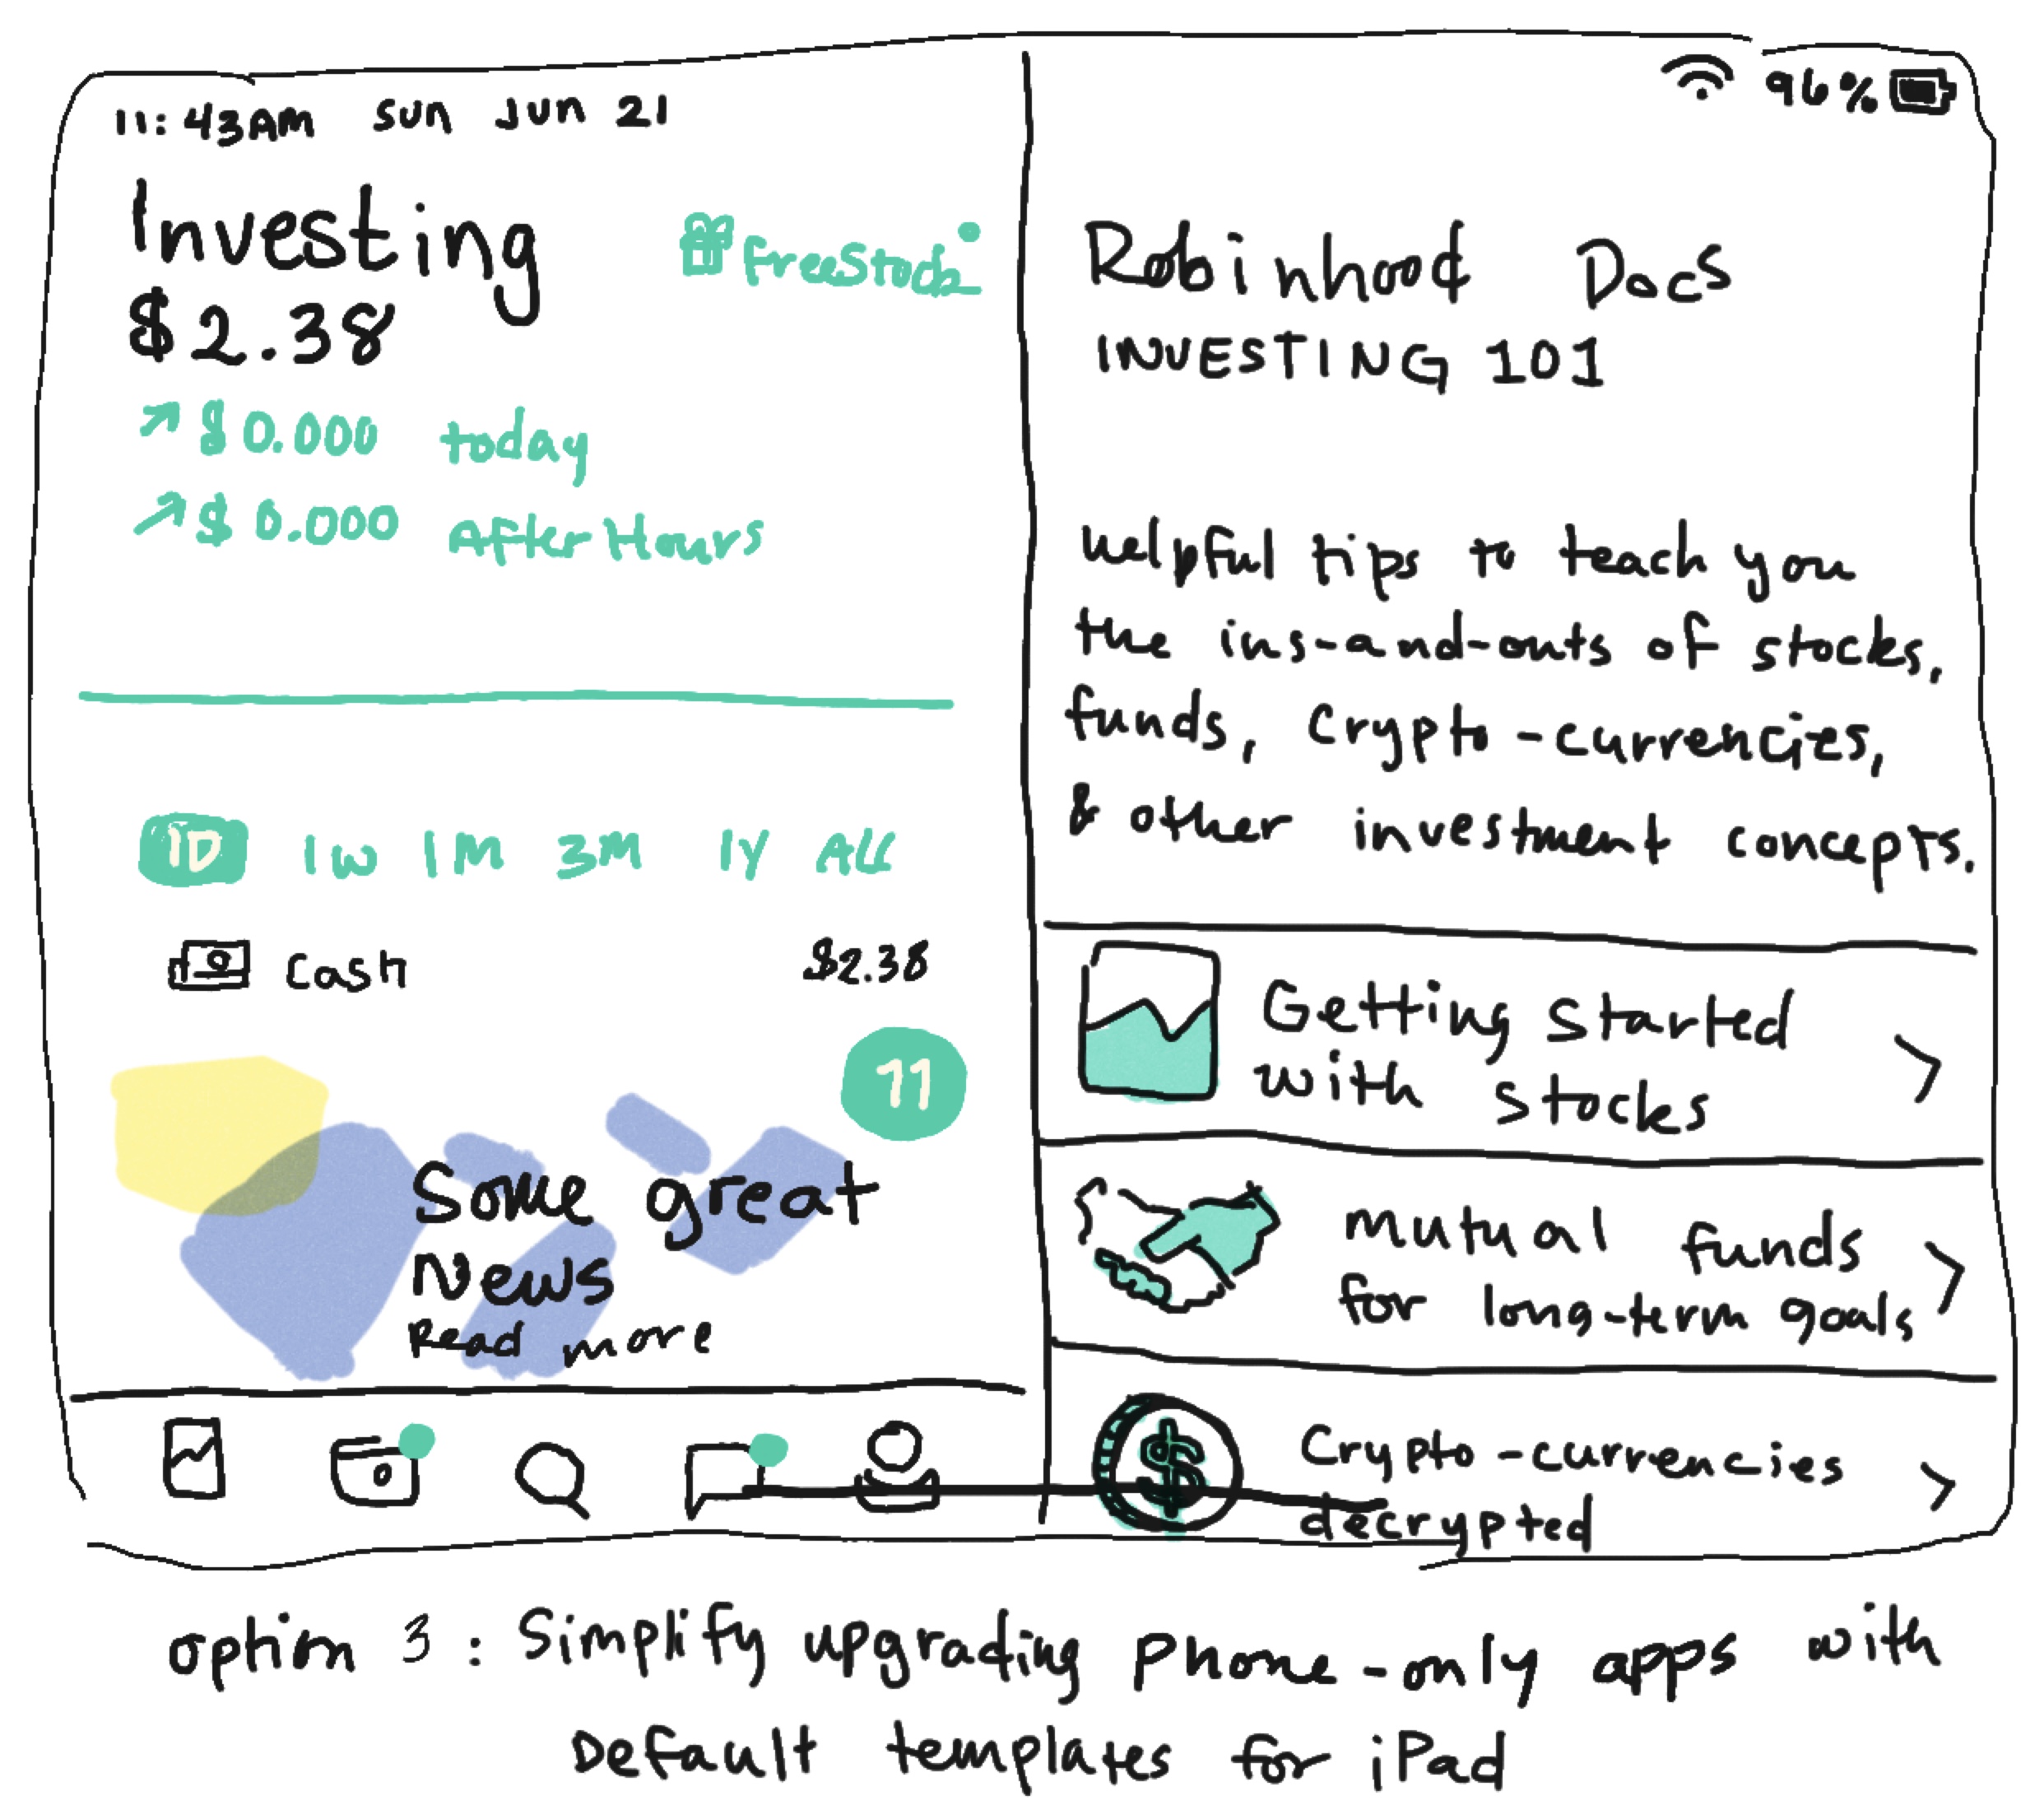 11:43AM sun Jun 21
96%
Investing
FreeStock
$2.38
$0.000 today
$0.000 AfterHours
1D 1W 1M 3M 1Y ALL
Cash $2.38
11
Some great
News
Read more
Robinhood Docs
INVESTING 101
Helpful tips to teach you
the ins-and-outs of stocks,
funds, crypto-currencies,
& other investment concepts.
Getting started
with stocks
Mutual funds
for long-term goals
$
Crypto-currencies
decrypted
option 3: Simplify upgrading phone-only apps with
Default templates for iPad